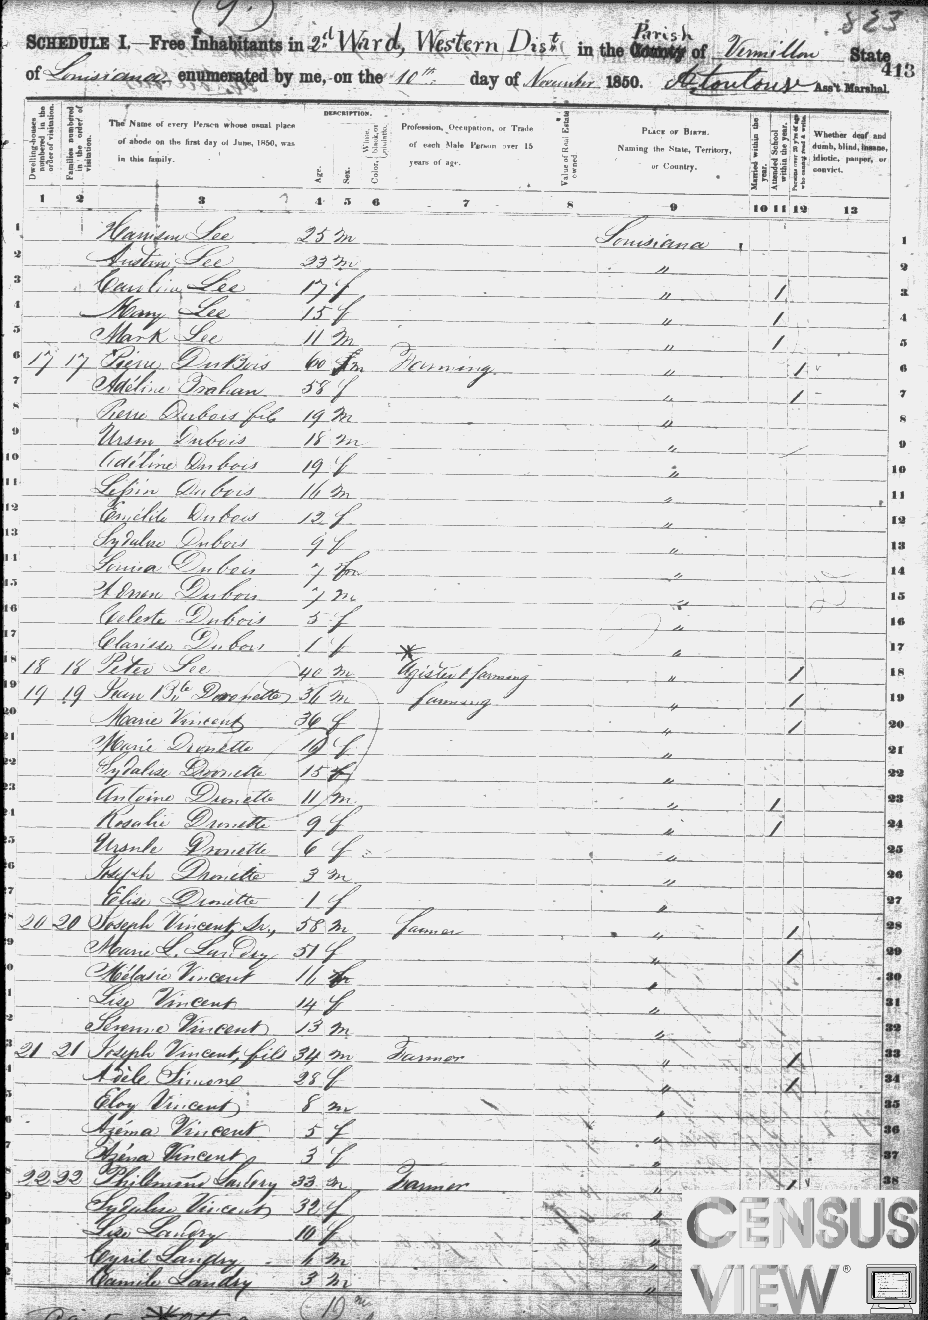 9.
823
SCHEDULE I.—Free Inhabitants in 2nd Ward, Western Dist. in the County Parish of Vermillon State
of Louisiana, enumerated by me, on the 10th day of November 1850. Ass't Marshal.
413
Dwelling-houses numbered in the order of visitation.
Families numbered in the order of visitation.
The Name of every Person whose usual place of abode on the first day of June, 1850, was in this family.
DESCRIPTION.
Age.
Sex.
Color, White, black, or mulatto.
Profession, Occupation, or Trade of each Male Person over 15 years of age.
Value of Real Estate owned.
PLACE OF BIRTH. Naming the State, Territory, or Country.
Married within the year.
Attended School within the year.
Persons over 20 y'rs of age who cannot read & write.
Whether deaf and dumb, blind, insane, idiotic, pauper, or convict.
1 2 3 4 5 6 7 8 9 10 11 12 13
1 Harrison Lee 25 m Louisiana 1
2 Austin Lee 23 m " 2
3 Carolina Lee 17 f " 1 3
4 Mary Lee 15 f " 1 4
5 Mark Lee 11 m " 1 5
6 17 17 Pierre DuBois 60 m Farming " 1 6
7 Adéline Trahan 58 f " 1 7
8 Pierre Dubois fils 19 m " 8
9 Ursin Dubois 18 m " 9
10 Adéline Dubois 19 f " 10
11 Dubois 16 m " 11
12 Emélite Dubois 12 f " 12
13 Sydalise Dubois 9 f " 13
14 Louisa Dubois 7 " 14
15 Dubois 7 m " 15
16 Celeste Dubois 5 f " 16
17 Clarisse Dubois 1 f " 17
18 18 18 Peter Lee 40 m * Agister & farming " 1 18
19 19 19 Jean Bte Dronette 36 m farming " 1 19
20 Marie Vincent 36 f " 1 20
21 Marie Dronette f " 21
22 Sydalise Dronette 15 f " 22
23 Antoine Dronette 11 m " 1 23
24 Rosalie Dronette 9 f " 1 24
25 Ursule Dronette 6 f " 25
26 Joseph Dronette 3 m " 26
27 Elise Dronette 1 f " 27
28 20 20 Joseph Vincent, Sr., 58 m farmer " 1 28
29 Marie L. Landry 51 f " 1 29
30 Mélasie Vincent 16 " 30
31 Lise Vincent 14 f " 31
32 Vincent 13 m " 32
33 21 21 Joseph Vincent, fils 34 m Farmer " 1 33
34 Adèle Simone 28 f " 1 34
35 Eloy Vincent 8 m " 35
36 Azéma Vincent 5 f " 36
37 Azéna Vincent 3 f " 37
38 22 22 Landry 33 m Farmer " 1 38
Sydalise Vincent 32 f "
Lise Landry 10 f
Cyril Landry 6 m
Camile Landry 3 m "
CENSUS
VIEW®